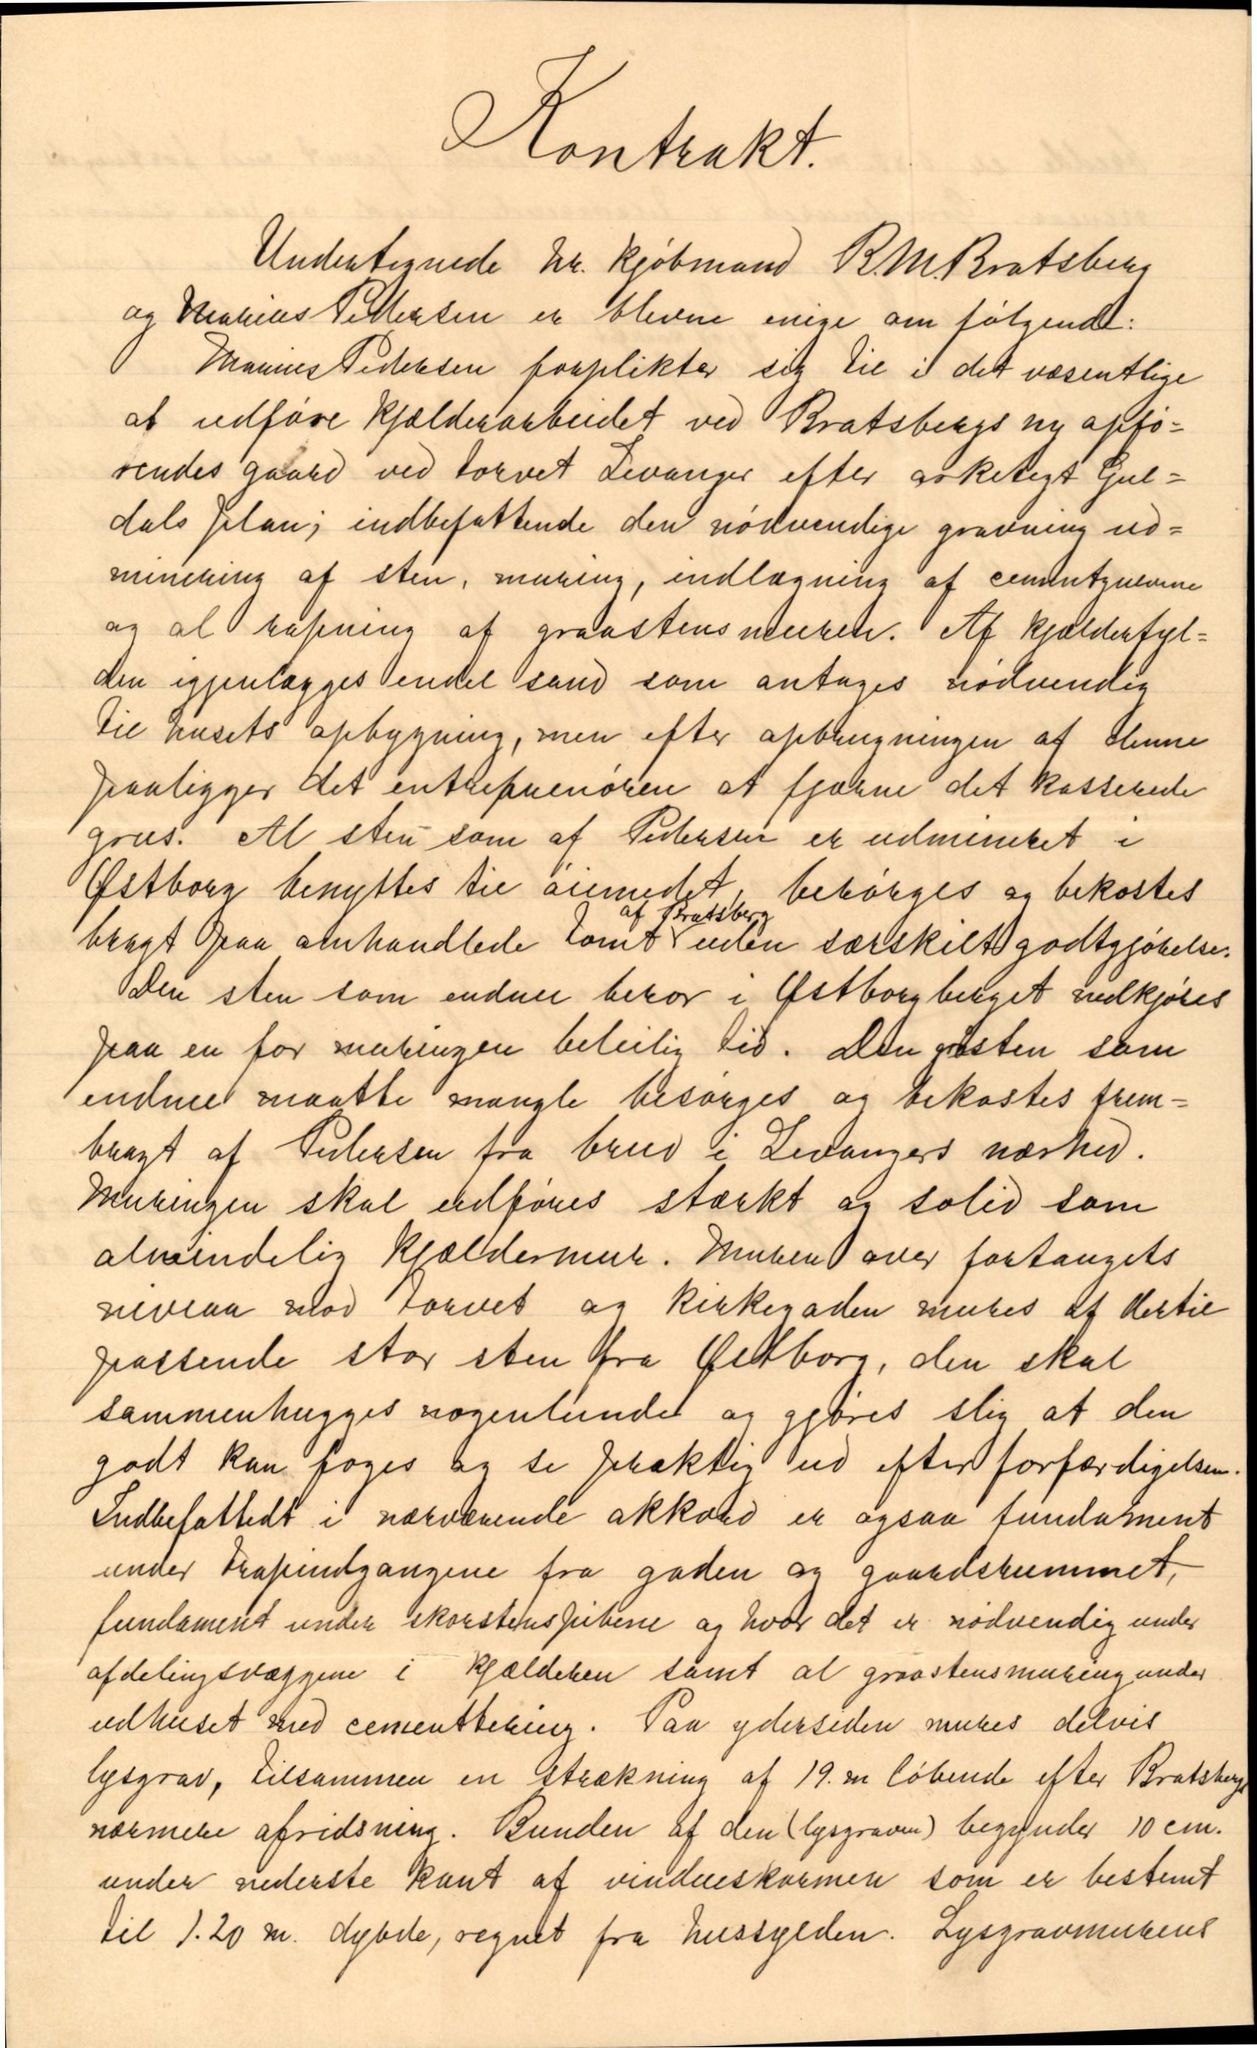 Kontrakt.
Undertegnede hr. kjøbmand R.M. Bratsberg
og Marius Pedersen er blevne enige om følgende:
Marius Pedersen forplikter sig til i det væsentlige
at udføre kjælderarbeidet ved Bratsbergs ny opfø=
rendes gaard ved torvet Levanger efter arketegt Gul=
dals plan; indbefattende den nødvendige gravning ud=
minering af sten, muring, indlægning af cementgulvene
og al rapning af graastensmuren. Af kjælderfyl=
den igjenlægges endel sand som antages nødvendig
til husets opbygning, men efter opbrugningen af denne
paaligger det entreprenøren at fjærne det kasserede
grus. Al sten som af Pedersen er udmineret i
Østborg benyttes til øiemedet, besørges og bekostes
af Bratsberg
bragt paa omhandlede tomt uden særskilt godtgjørelse.
Den sten som endnu beror i Østborgberget nedkjøres
paa en for muringen beleilig tid. Den sten som
endnu maatte mangle besørges og bekostes frem=
bragt af Pedersen fra brud i Levangers nærhed.
Muringen skal udføres stærkt og solid som
almindelig kjældermur. Muren over fortaugets
niveaa mod torvet og kirkegaden mures af dertil
passende stor sten fra Østborg, den skal
sammenhugges nogenlunde og gjøres slig at den
godt kan foges og se præktig ud efter forfærdigelsen.
Indbefattedt i nærværende akkord er ogsaa fundament
under trapindgangene fra gaden og gaardsrummet,
fundament under skorstenspibene og hvor det er nødvendig under
afdelingsvæggene i kjælderen samt al graastensmuring under
udhuset med cementtering. Paa ydersiden mures delvis
lysgrav, tilsammen en strækning af 19. m løbende efter Bratsbergs
nærmere afridsning. Bunden af den (lysgraven) begynder 10 cm.
under nederste kant af vindueskarmen som er bestemt
til 1.20 m. dybde, regnet fra hussylden. Lysgravmurens